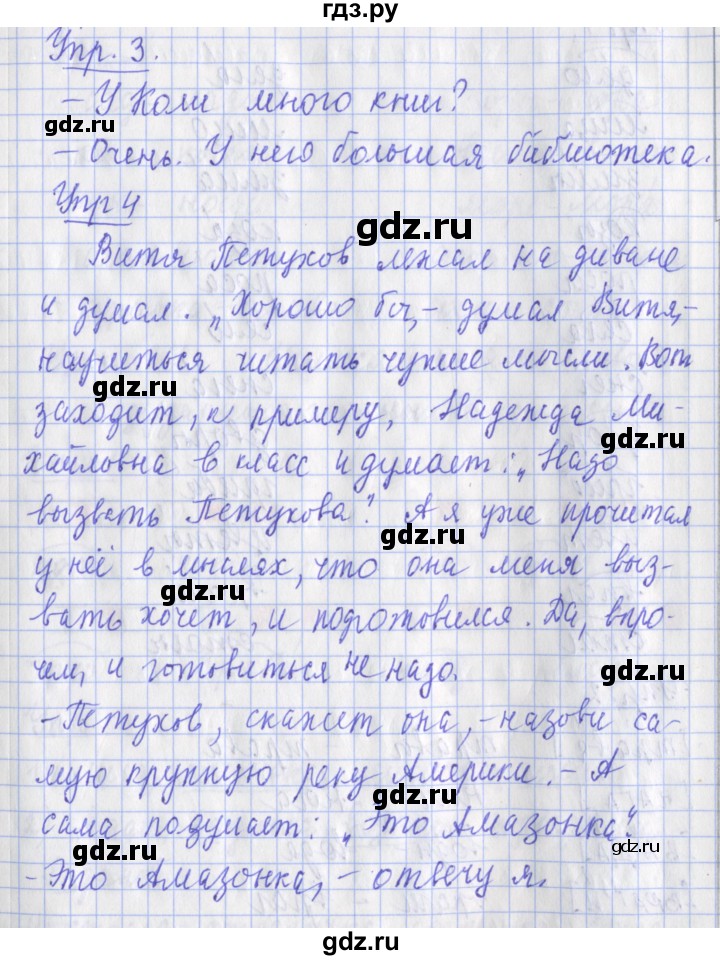 гдз.ру
Упр. 3.
– У Коли много книг?
gdz.ru
– Очень. У него большая библиотека.
Упр 4
gdz.ru
Витя Петухов лежал на диване
и думал. „Хорошо бы, – думал Витя, –
научиться читать чужие мысли. Вот
gdz.ru
заходит, к примеру, Надежда Ми-
gdz.ru
хайловна в класс и думает: „Надо
вызвать Петухова". А я уже прочитал
gdz.ru
у неё в мыслях, что она меня выз-
gdz.ru
вать хочет, и подготовился. Да, впро-
чем, и готовиться не надо.
gdz.ru
– Петухов, скажет она, – назови са-
мую крупную реку Америки. – А
gdz.ru
сама подумает: „Это Амазонка".
gdz.ru
gdz.ru
– Это Амазонка, – отвечу я.
gdz.ru
gdz.ru